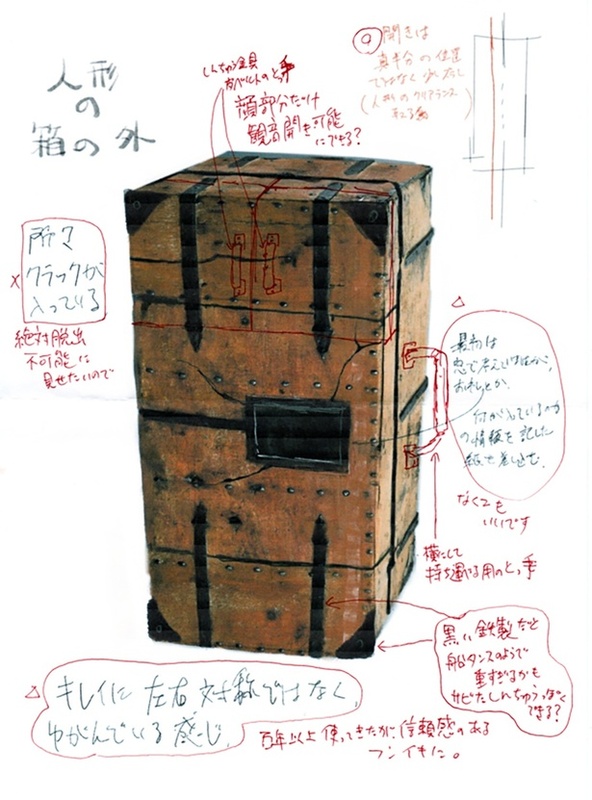 人形
の
箱の外
しんちゅう金具
のとっ手
顔部分だけ
観音開き可能
にできる?
開きは
真半分の位置
ではなく
(人形のクリアランス
所々
クラックが
入っている
×
絶対脱出
不可能に
見せたいので
△
最初は
窓で考えていた
お札とか。
何が入っているのか
の情報を記した
紙を差し込む。
なくても
いいです
横にして
持ち運べる用のとっ手
黒い鉄製だと
船タンスのようで
重すぎるかも
サビたしんちゅうっぽく
できる?
△
キレイに左右対称ではなく、
ゆがんでいる感じ。
百年以上使ってきたが、信頼感のある
フンイキに。